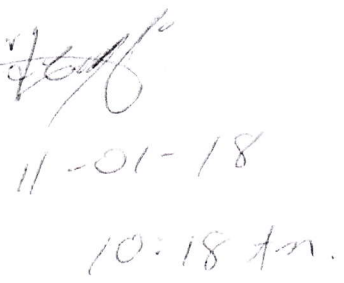 11-01-18
10:18 Am.